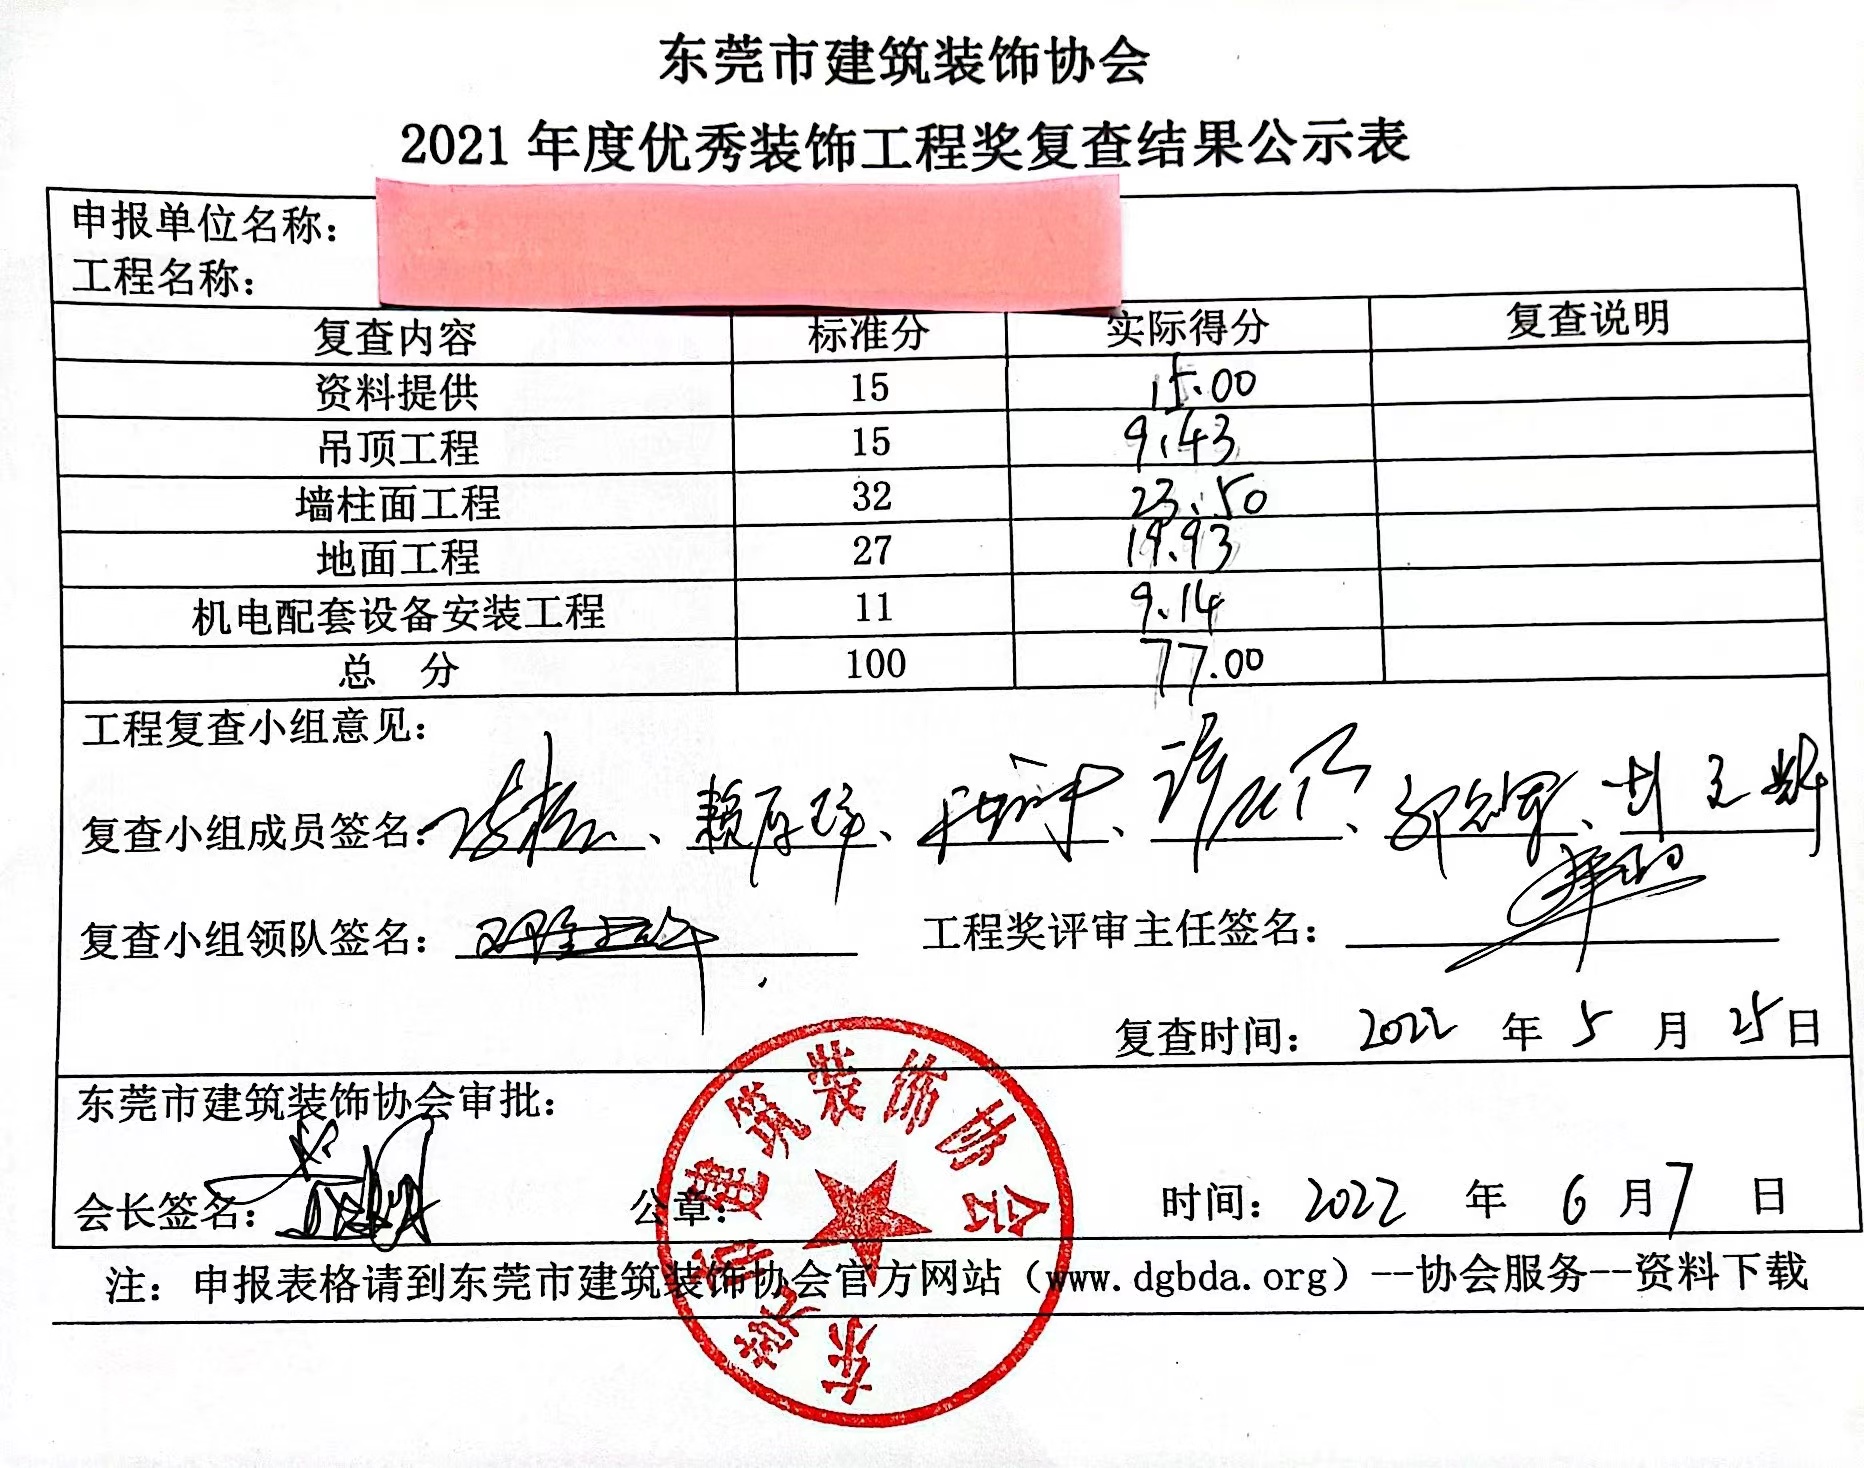 东莞市建筑装饰协会
2021 年度优秀装饰工程奖复查结果公示表
申报单位名称：
工程名称：
复查内容 标准分 实际得分 复查说明
资料提供 15 15.00
吊顶工程 15 9.43
墙柱面工程 32 23.50
地面工程 27 19.93
机电配套设备安装工程 11 9.14
总 分 100 77.00
工程复查小组意见：
复查小组成员签名：
复查小组领队签名： 工程奖评审主任签名：
复查时间： 2022 年 5 月 25 日
东莞市建筑装饰协会审批：
会长签名： 公章： 时间： 2022 年 6 月 7 日
注：申报表格请到东莞市建筑装饰协会官方网站（www.dgbda.org）--协会服务--资料下载
东莞市建筑装饰协会